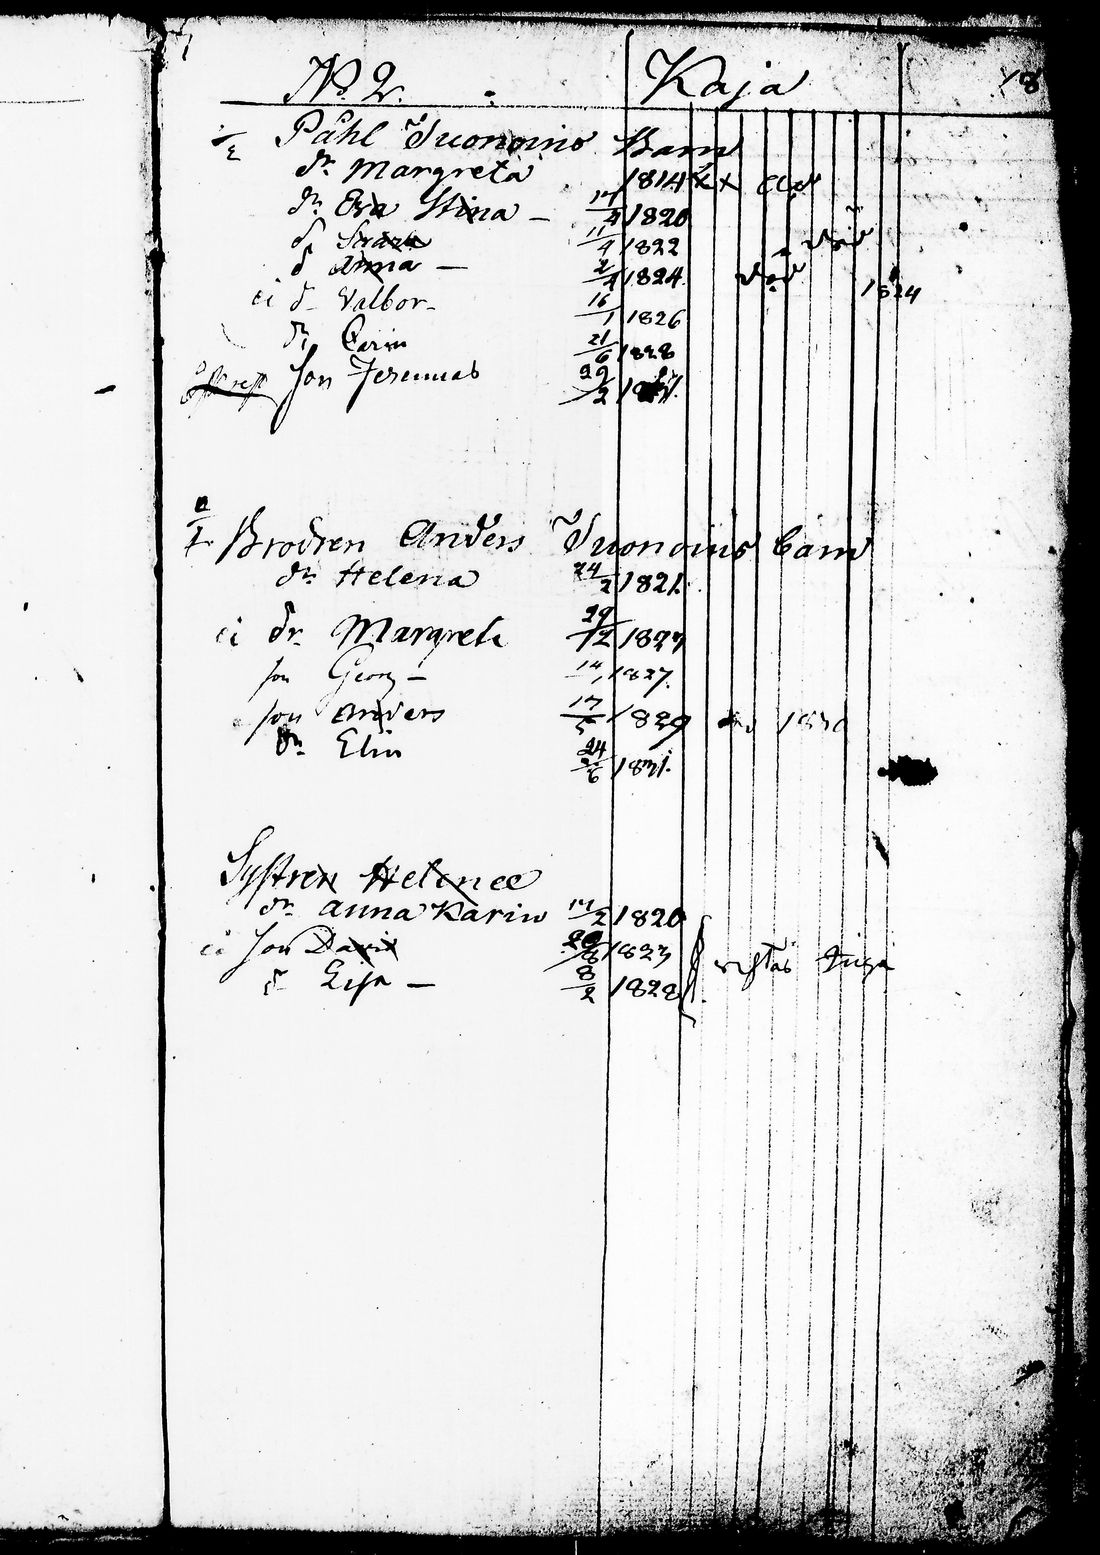 No 2. Kaja 18
Påhl Tuonoins Barn
dr Margreta 1814 x x
dr Eva Stina — 17/4 1820
d Sarah 11/4 1822 död
d Anna — 2/4 1824 död 1824
ci d Valbor 16/1 1826
dr Carin 21/6 1828
Son Jeremias 29/2
Brodren Anders Tuonoins barn
dr Helena 24/2 1821.
ci dr Margreta 29/12 1823
son Georg — 14 1827.
son Anders 17/5 1829 1830
dr Elin 24/6 1831.
Systren Helenee
dr Anna Karin 14/2 1820
ci Son David 1823
d Lisa — 8/2 1828